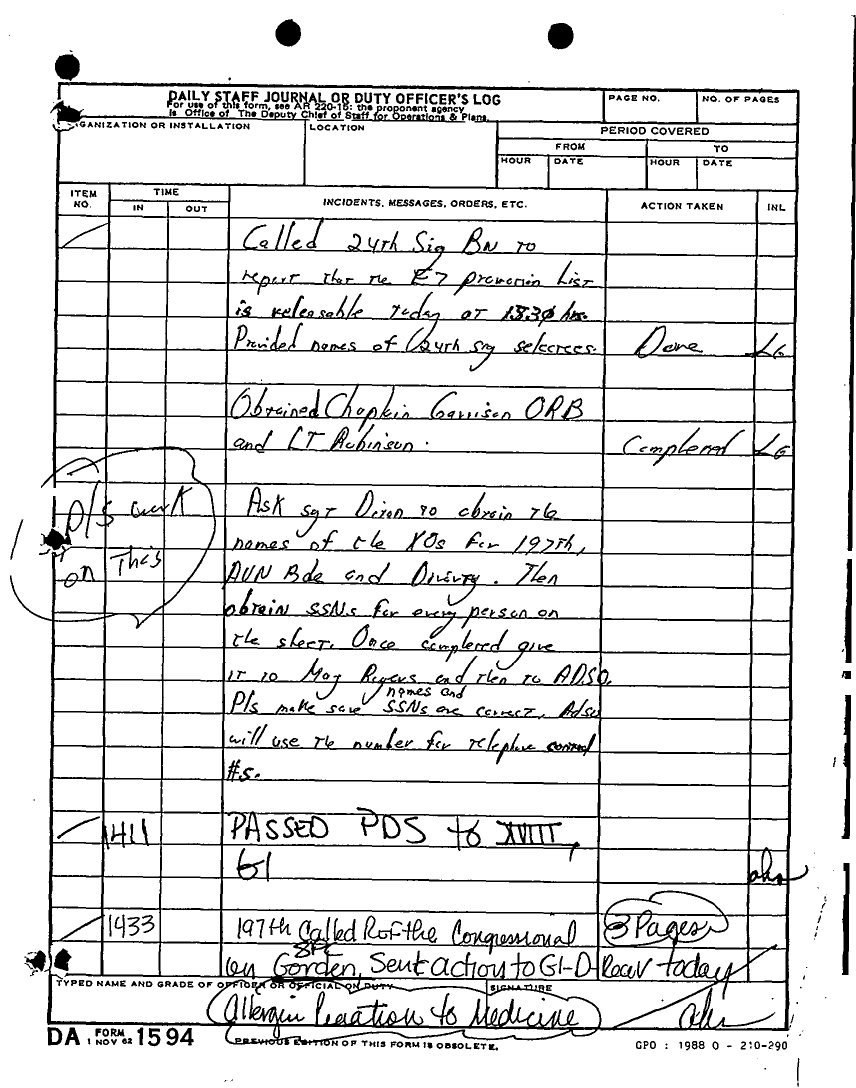 DAILY STAFF JOURNAL OR DUTY OFFICER'S LOG
For use of this form, see AR 220-15; the proponent agency
is Office of The Deputy Chief of Staff for Operations & Plans.
PAGE NO.
NO. OF PAGES
GANIZATION OR INSTALLATION
LOCATION
PERIOD COVERED
FROM
TO
HOUR
DATE
HOUR
DATE
ITEM NO.
TIME
IN
OUT
INCIDENTS, MESSAGES, ORDERS, ETC.
ACTION TAKEN
INL
Called 24th Sig Bn to
report that the E7 promotion List
is releasable today at 1330 hrs.
Provided names of 24th sig selectees. Done LG
Obtained Chaplin Garrison ORB
and LT Robinson. Completed LG
Pls work
on This
Ask sgt Dixon to obtain the
names of the XOs for 197th,
AVN Bde and Divarty. Then
obtain SSNs for every person on
the sheet. Once completed give
it to Maj Rogers and then to ADSO.
Pls make sure names and SSNs are correct. Adso
will use the number for telephone control
#s.
1411 PASSED PDS to XVIII,
G1
1433 197th Called Ref the Congressional 3 Pages
on SPC Gorden, Sent action to G1-D-Rear today
TYPED NAME AND GRADE OF OFFICER OR OFFICIAL ON DUTY
SIGNATURE
Allergin Reaction to Medicine
DA FORM 1 NOV 62 1594
PREVIOUS EDITION OF THIS FORM IS OBSOLETE.
GPO : 1988 O - 210-290